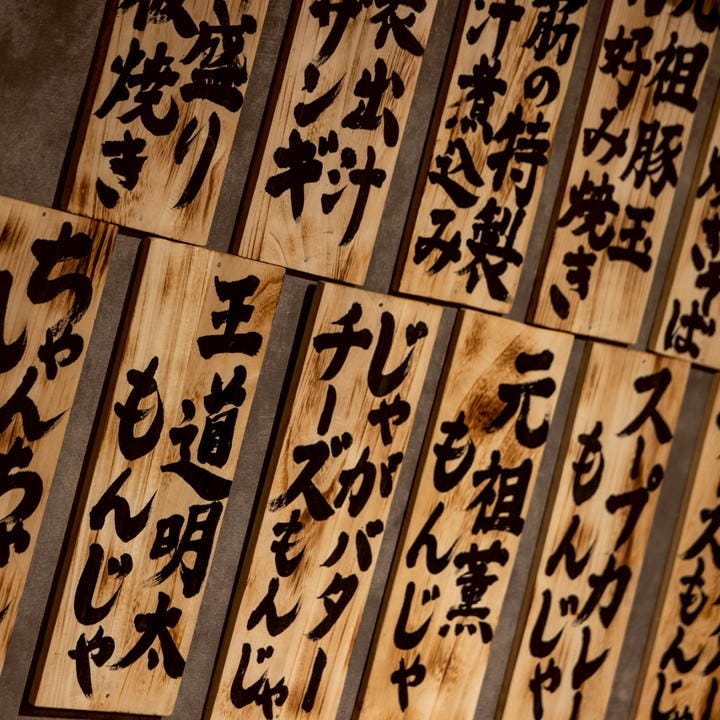 きそば
元祖豚玉
好み焼き
筋の特製
汁煮込み
出汁
ザンギ
盛り
板焼き
ズもんじゃ
スープカレー
もんじゃ
元祖薫
もんじゃ
じゃがバター
チーズもんじゃ
王道明太
もんじゃ
ちゃんちゃ